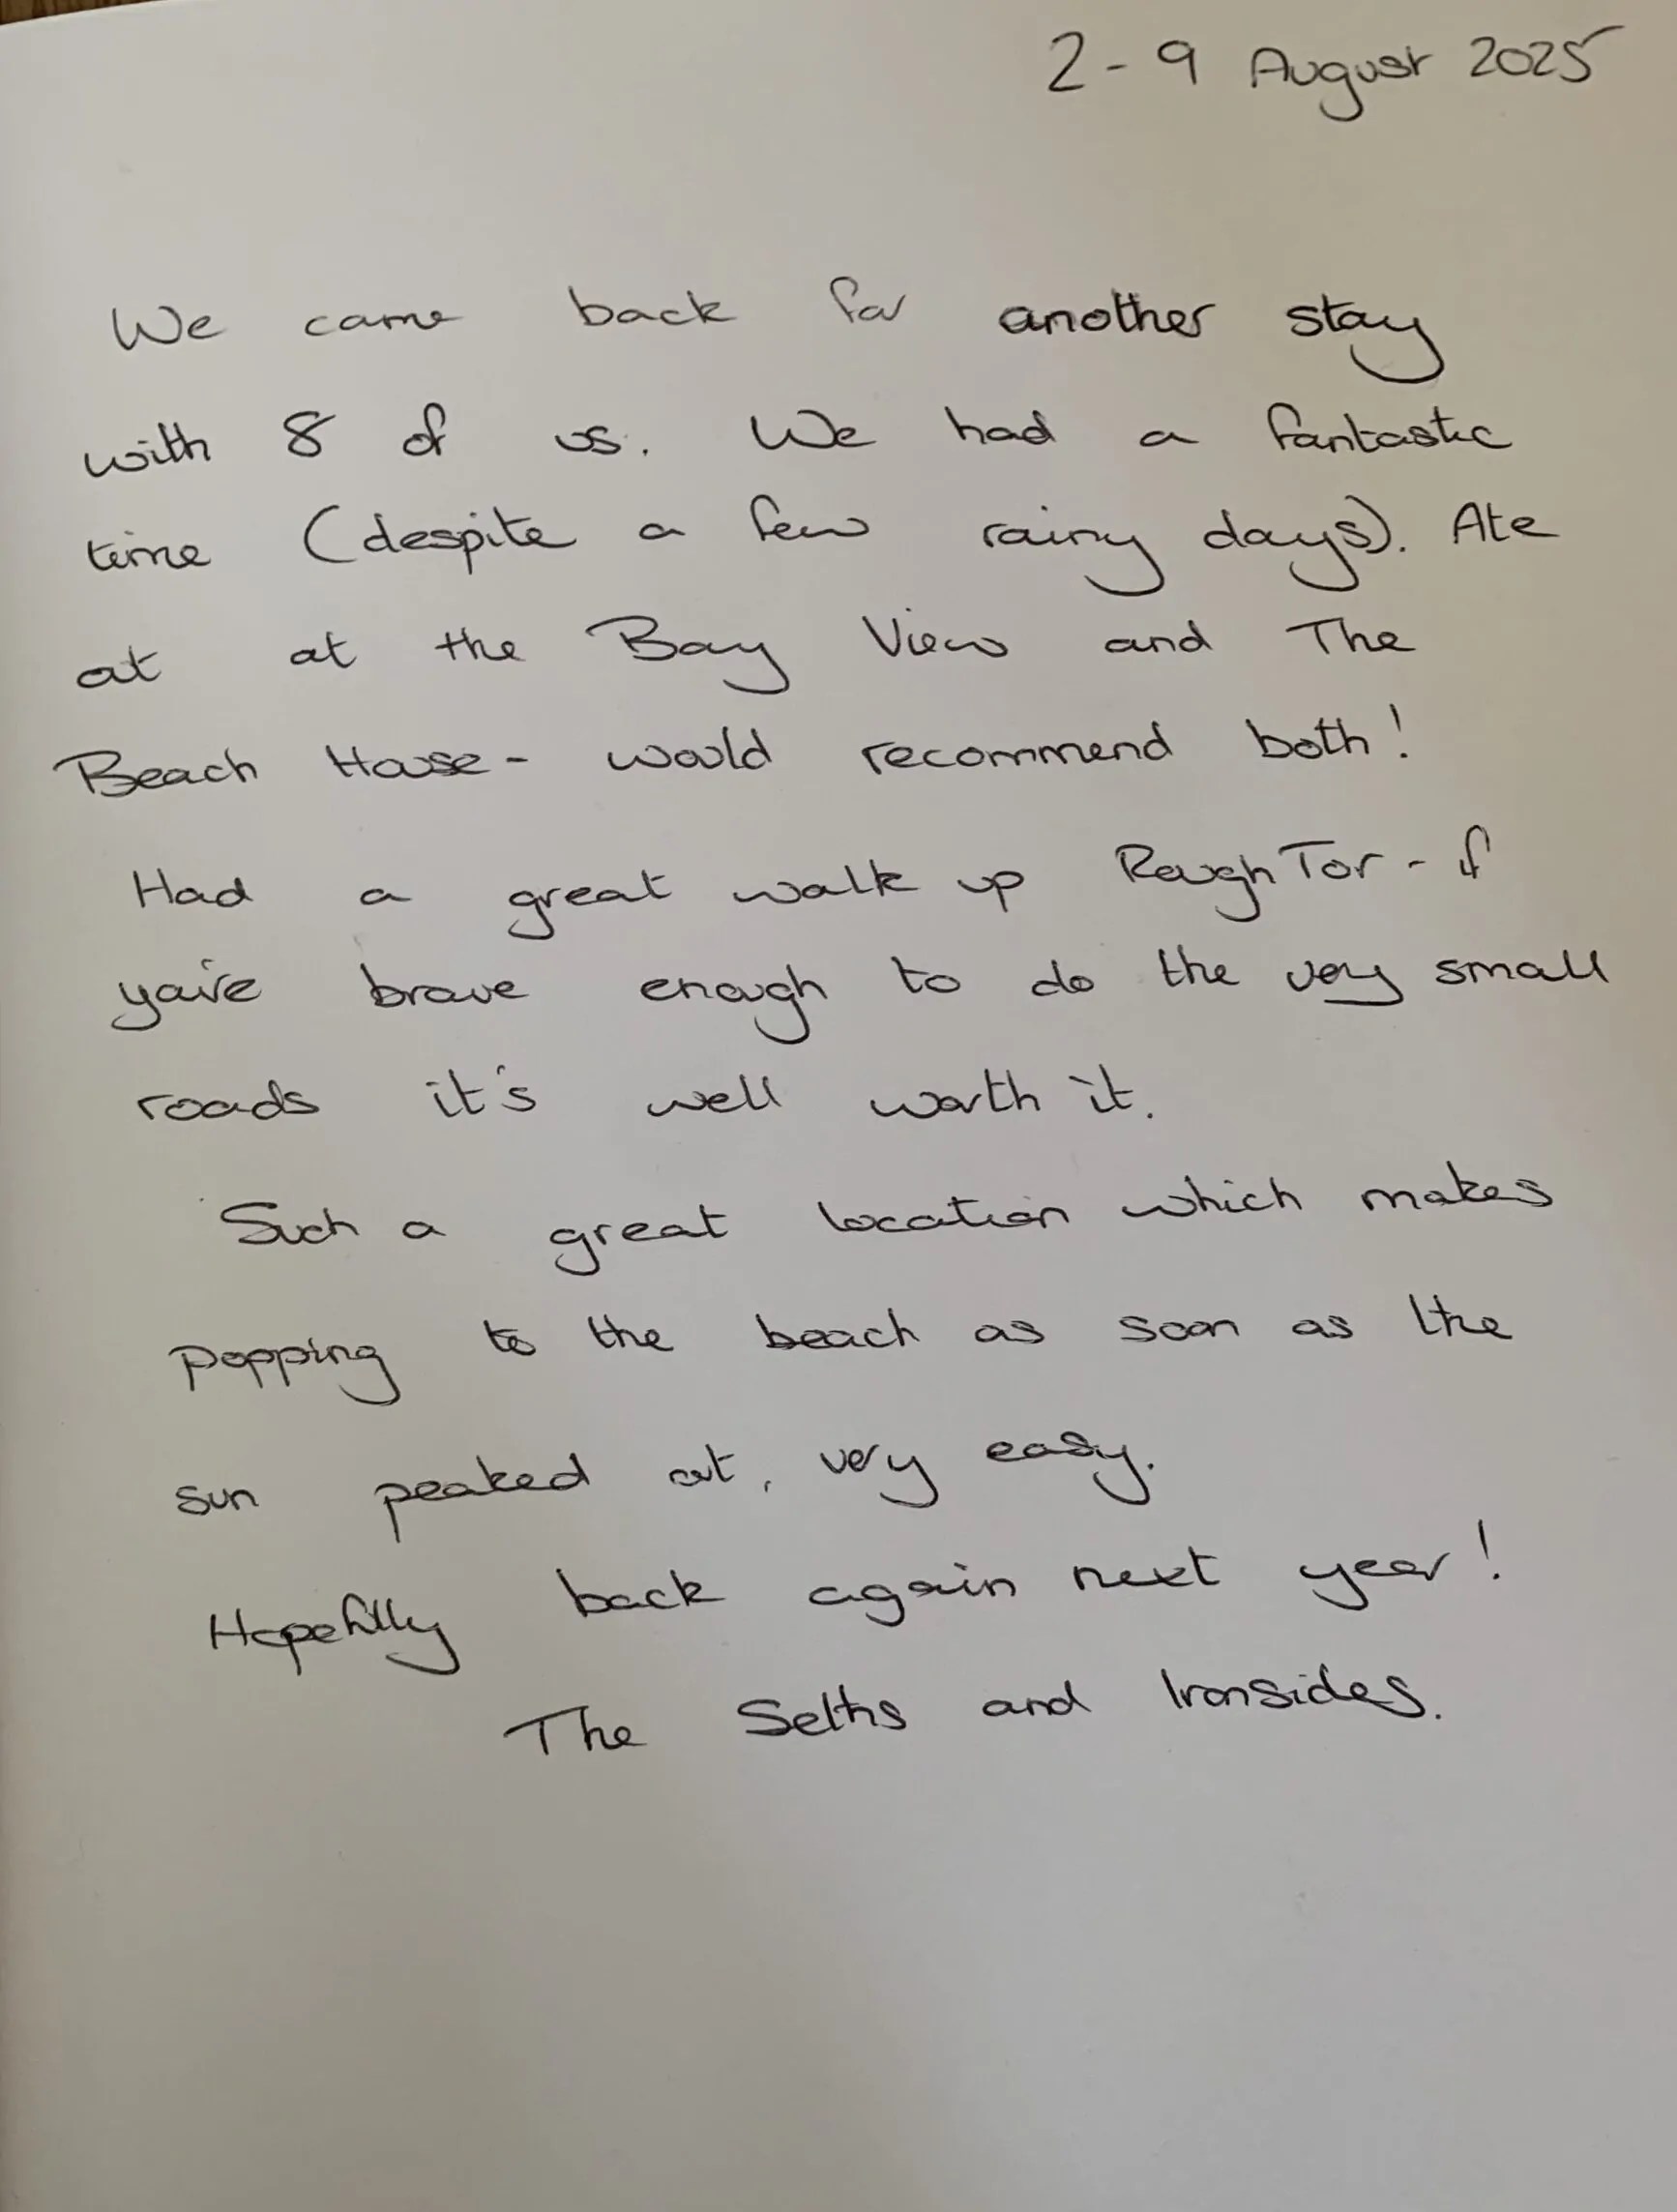 2 - 9 August 2025
We came back for another stay
with 8 of us. We had a fantastic
time (despite a few rainy days). Ate
at at the Bay View and The
Beach House - would recommend both!
Had a great walk up Rough Tor - if
you're brave enough to do the very small
roads it's well worth it.
Such a great location which makes
popping to the beach as soon as the
sun peaked out, very easy.
Hopefully back again next year!
The Selths and Ironsides.